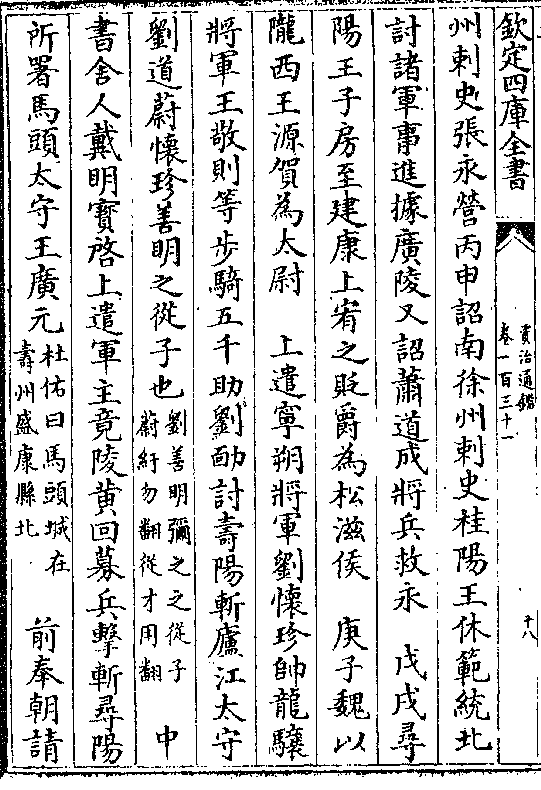 欽定四庫全書
資治通鑑
卷一百三十一
十八
州刺史張永營丙申詔南徐州刺史桂陽王休範統北
討諸軍事進據廣陵又詔蕭道成將兵救永　戊戌尋
陽王子房至建康上宥之貶爵為松滋侯　庚子魏以
隴西王源賀為太尉　上遣寧朔將軍劉懷珍帥龍驤
將軍王敬則等步騎五千助劉勔討壽陽斬廬江太守
劉道蔚懷珍善明之從子也劉善明彌之之從子
蔚紆勿翻從才用翻　中
書舍人戴明寳啓上遣軍主竟陵黄回募兵擊斬尋陽
所署馬頭太守王廣元杜佑曰馬頭城在
壽州盛康縣北　前奉朝請